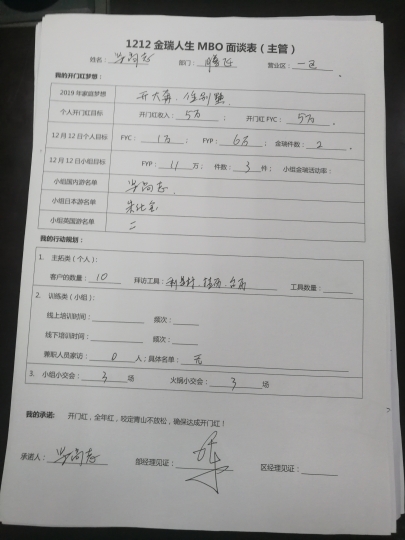 1212 金瑞人生 MBO 面谈表（主管）
姓名： 部门：腾飞 营业区：一区
我的开门红梦想：
2019 年家庭梦想 开大奔，住别墅
个人开门红目标 开门红收入：5万； 开门红 FYC：5万
12 月 12 日个人目标 FYC：1万 FYP：6万 金瑞件数：2
12 月 12 日小组目标 FYP：11 万； 件数：3 件； 小组金瑞活动率：
小组国内游名单
小组日本游名单
小组英国游名单 二
我的行动规划：
1. 主拓类（个人）：
客户的数量：10 拜访工具： 工具数量：
2. 训练类（小组）：
线上培训时间： 频次：
线下培训时间： 频次：
兼职人员家访：0 人；具体名单：无
3. 小组小交会：3 场 火锅小交会：3 场
我的承诺： 开门红，全年红，咬定青山不放松，确保达成开门红！
承诺人： 部经理见证： 区经理见证：